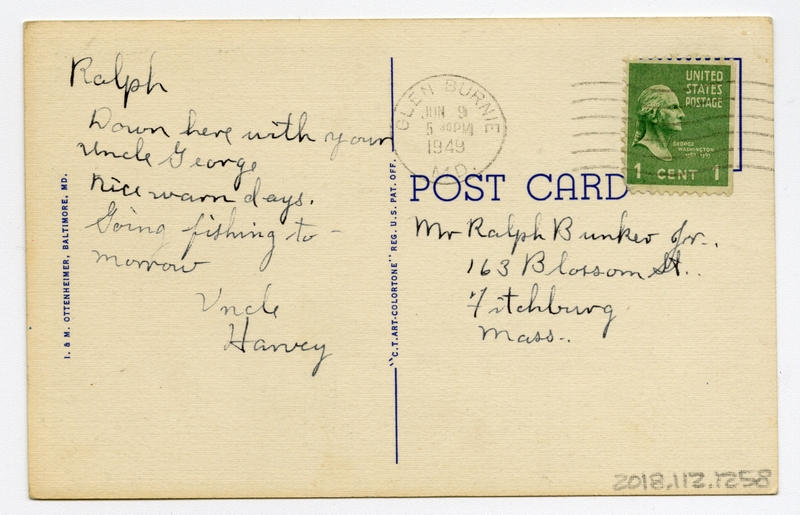 Ralph
Down here with your
Uncle George
Nice warm days.
Going fishing to-
morrow
Uncle
Harvey
I. & M. OTTENHEIMER, BALTIMORE, MD.
"C.T. ART-COLORTONE" REG. U.S. PAT. OFF.
GLEN BURNIE
JUN 9
5 PM
1949
MD.
UNITED
STATES
POSTAGE
GEORGE
WASHINGTON
1 CENT 1
POST CARD
Mr Ralph Bunker Jr.
163 Blossom St.
Fitchburg
Mass.
2018.112.1258